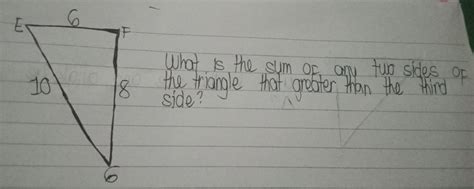 6
E F
10 8
G
What is the sum of any two sides of
the triangle that greater than the third
side?